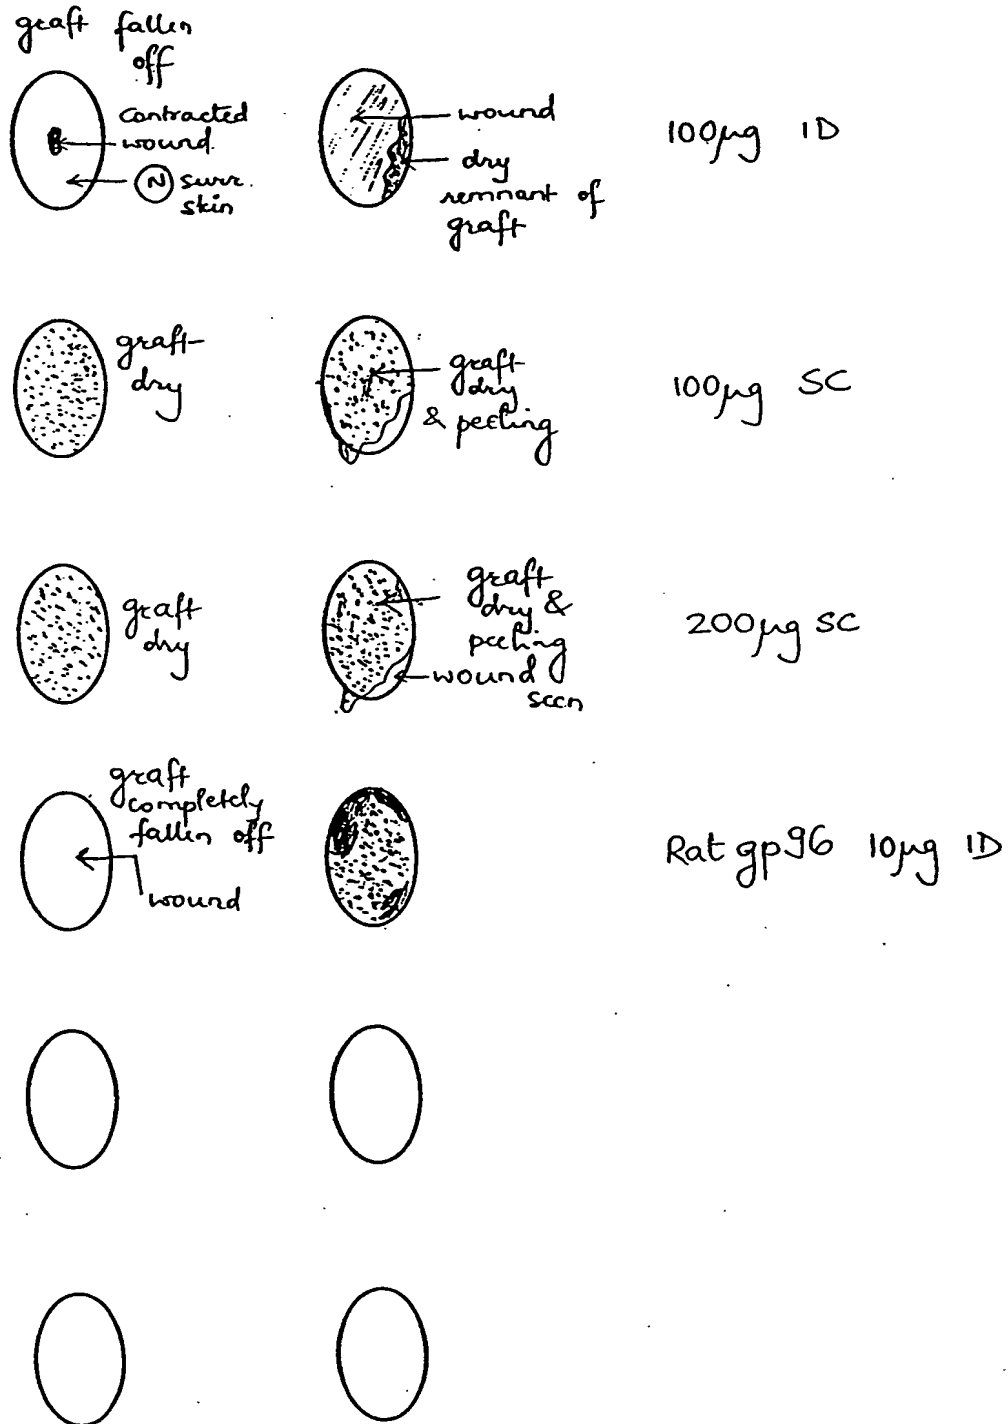 graft fallen
off
contracted
wound.
Ⓝ surr.
skin
wound
dry
remnant of
graft
100μg ID
graft
dry
graft
dry
& peeling
100μg SC
graft
dry
graft
dry &
peeling
wound
seen
200μg SC
graft
completely
fallen off
wound
Rat gp96 10μg ID